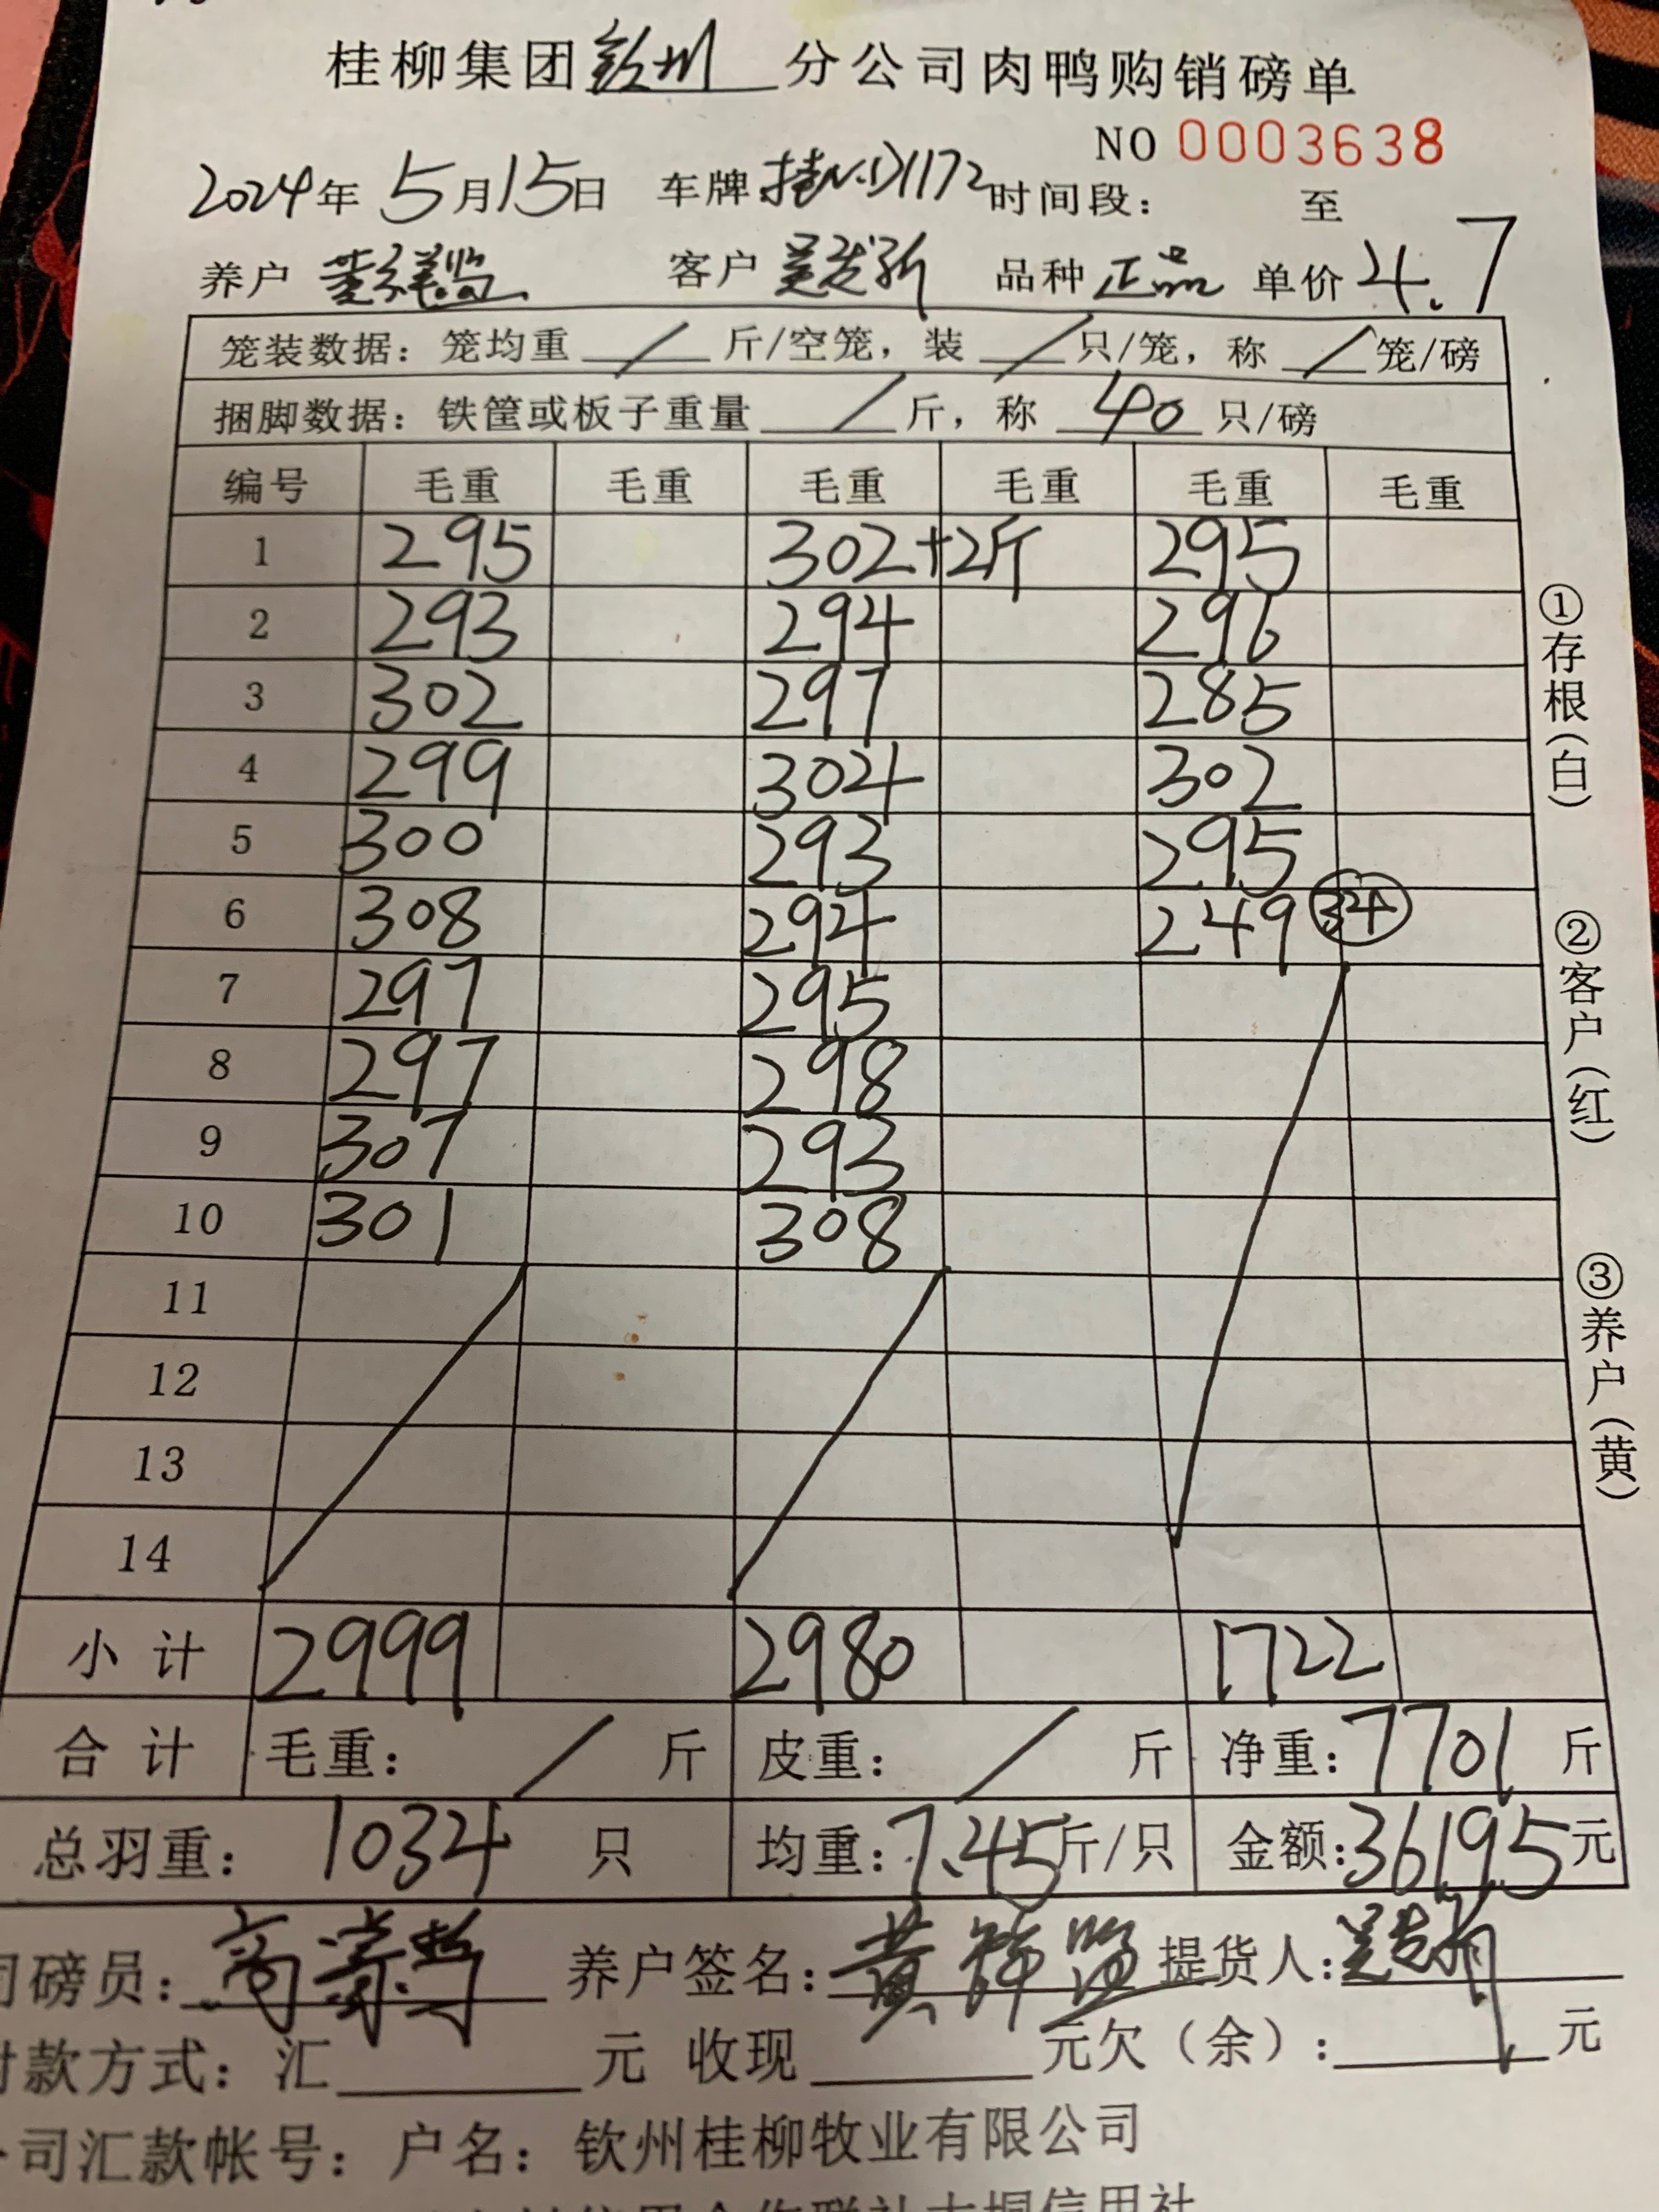 桂柳集团钦州分公司肉鸭购销磅单
NO 0003638
2024年 5月15日 车牌桂N·D1172 时间段： 至
养户 黄祥览 客户 品种 正品 单价 4.7
笼装数据：笼均重 / 斤/空笼，装 / 只/笼，称 / 笼/磅
捆脚数据：铁筐或板子重量 / 斤，称 40 只/磅
编号 毛重 毛重 毛重 毛重 毛重 毛重
1 295 302+2斤 295
2 293 294 296
3 302 297 285
4 299 304 302
5 300 293 295
6 308 294 249 34
7 297 295
8 297 298
9 307 293
10 301 308
11
12
13
14
小计 2999 2980 1722
合计 毛重： / 斤 皮重： / 斤 净重：7701 斤
总羽重： 1034 只 均重：7.45斤/只 金额：36195元
①存根（白）
②客户（红）
③养户（黄）
司磅员： 养户签名：黄祥览 提货人：
付款方式：汇 元 收现 元欠（余）： 元
公司汇款帐号：户名：钦州桂柳牧业有限公司